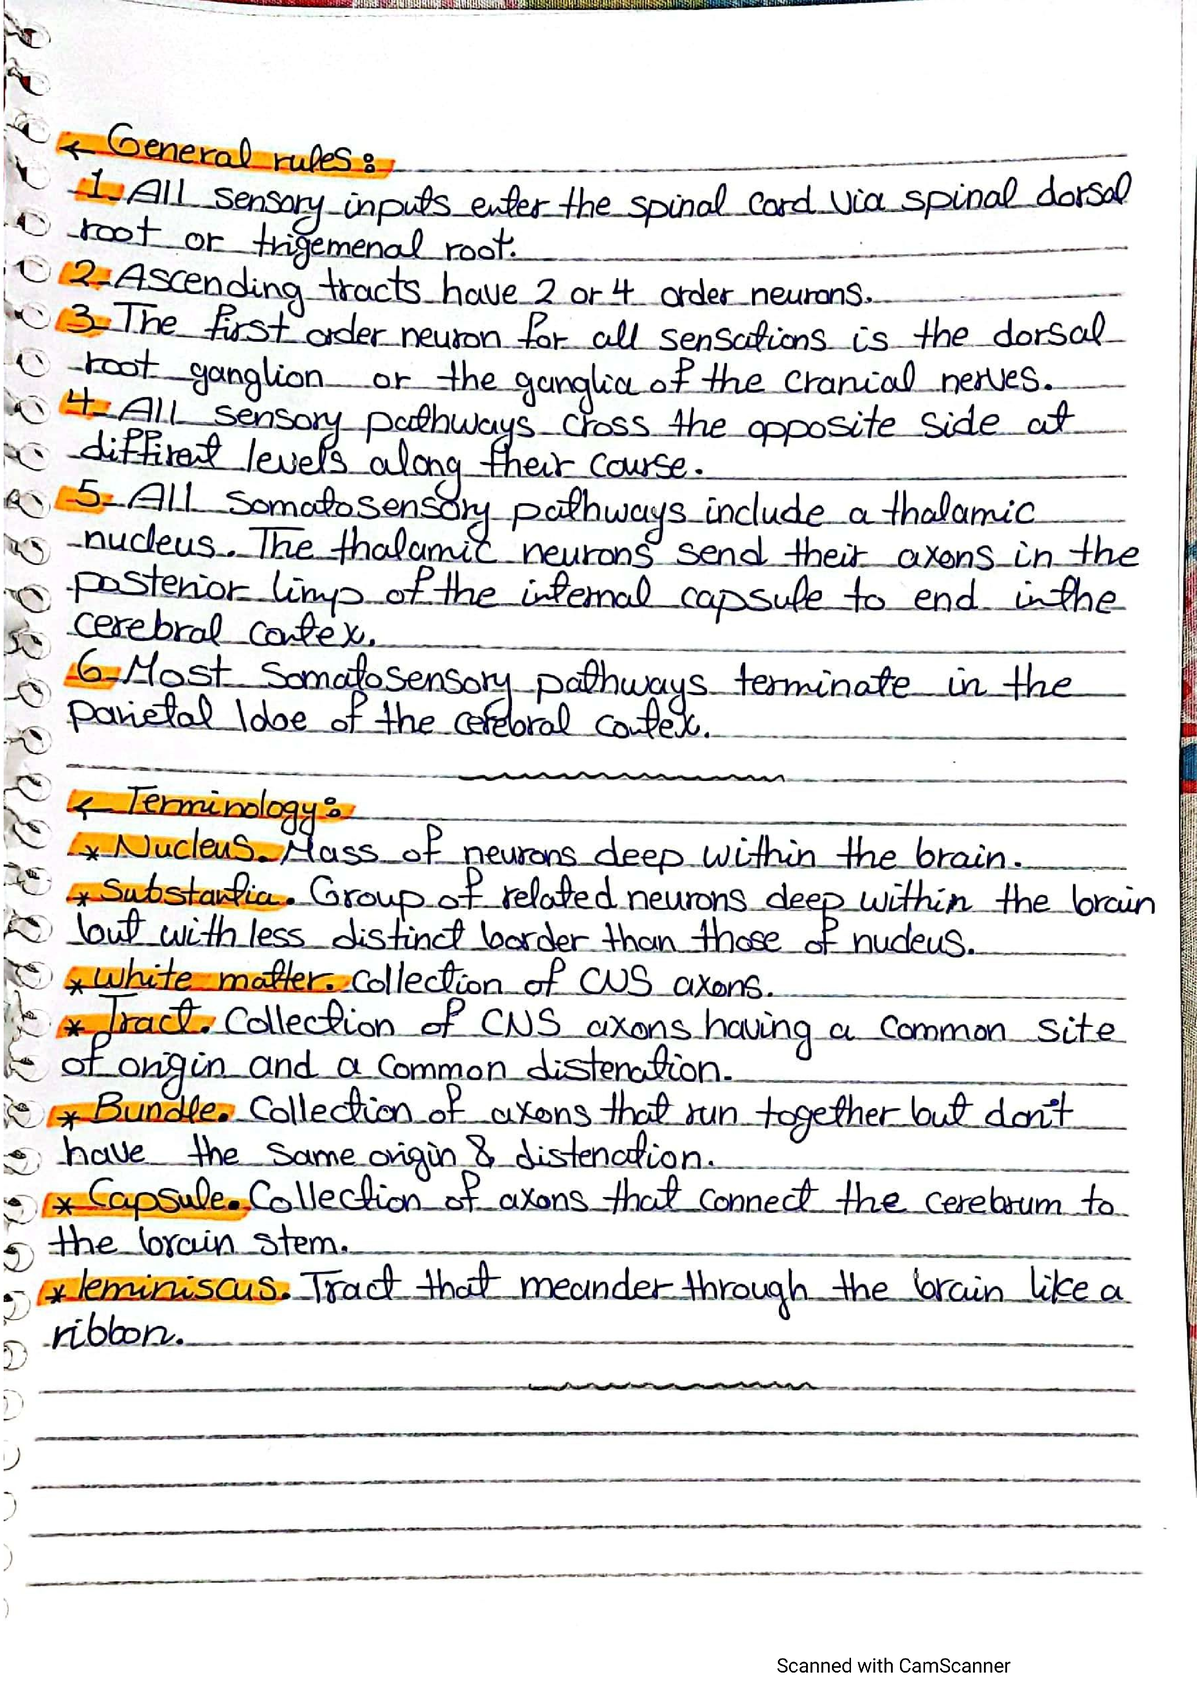 ← General rules:
1. All sensory inputs enter the spinal cord via spinal dorsal
root or trigemenal root.
2. Ascending tracts have 2 or 4 order neurons.
3. The first order neuron for all sensations is the dorsal
root ganglion or the ganglia of the cranial nerves.
4. All sensory pathways cross the opposite side at
diffirent levels along their course.
5. All somatosensory pathways include a thalamic
nucleus. The thalamic neurons send their axons in the
posterior limp of the internal capsule to end in the
cerebral cortex.
6. Most somatosensory pathways terminate in the
parietal lobe of the cerebral cortex.
← Terminology:
* Nucleus. Mass of neurons deep within the brain.
* Substantia. Group of related neurons deep within the brain
but with less distinct border than those of nucleus.
* white matter. Collection of CNS axons.
* Tract. Collection of CNS axons having a common site
of origin and a common distenation.
* Bundle. Collection of axons that run together but don't
have the same origin & distenation.
* Capsule. Collection of axons that connect the cerebrum to
the brain stem.
* leminiscus. Tract that meander through the brain like a
ribbon.
Scanned with CamScanner